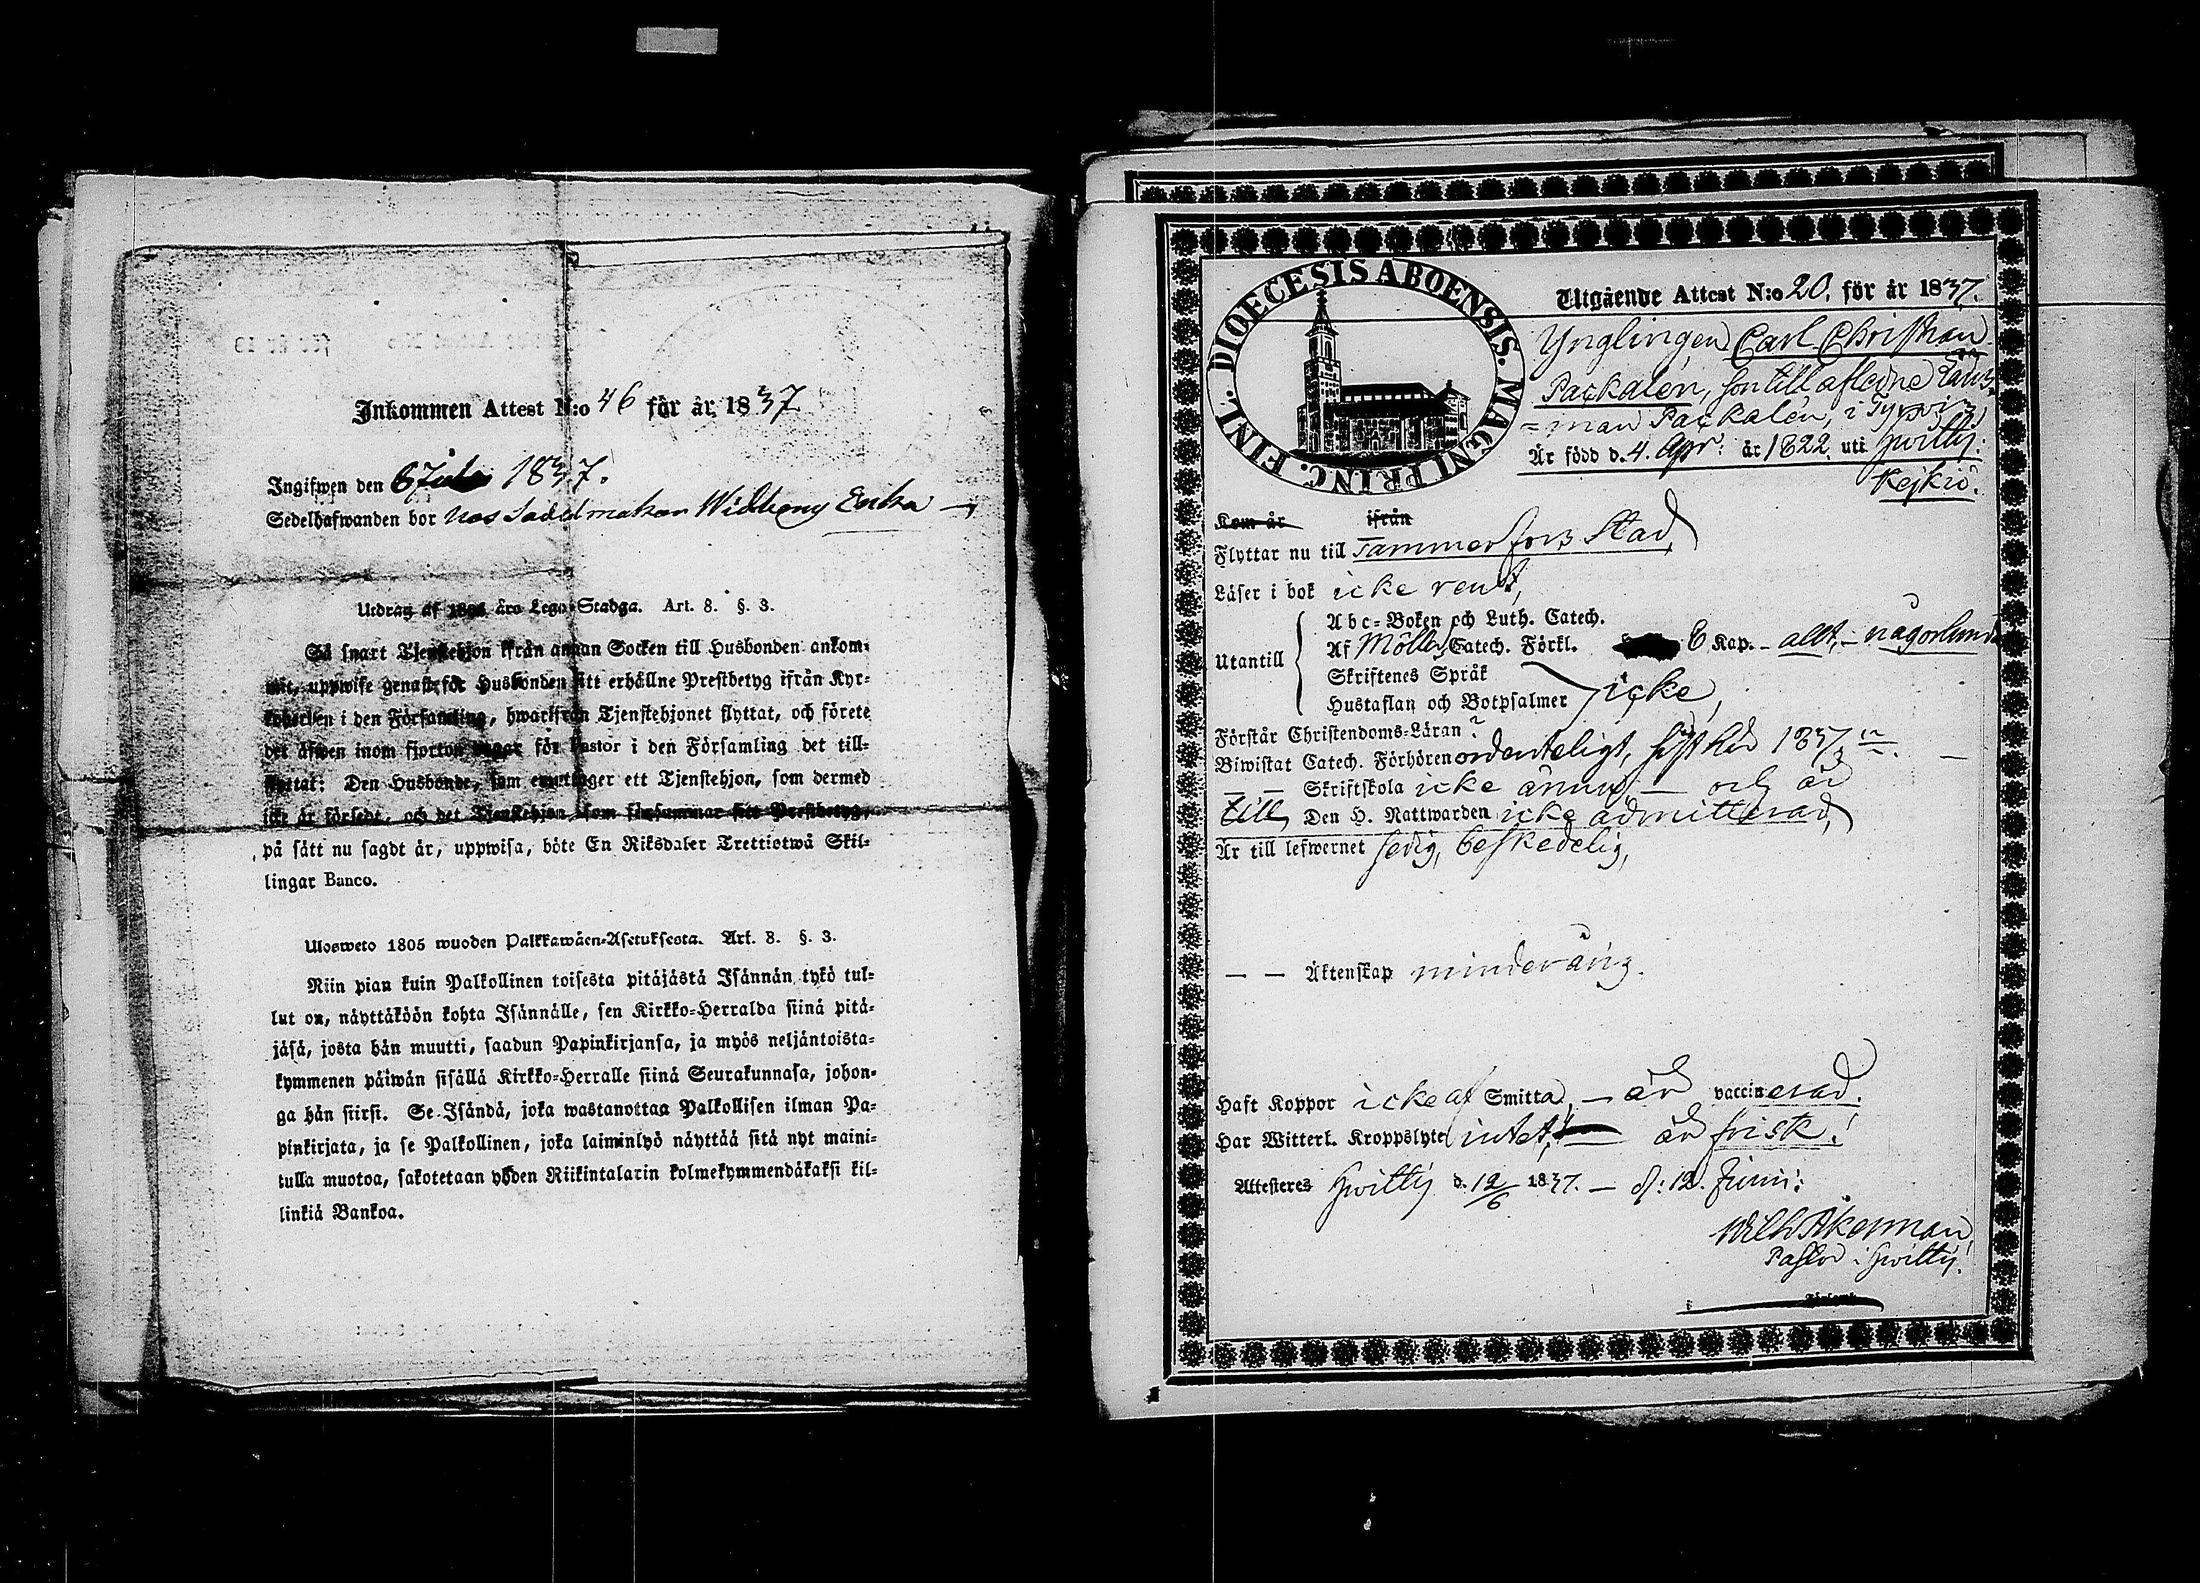 Inkommen Attest N:o 46 för år 1837.
Ingifwen den 6 Juli 1837.
Sedelhafwanden bor hos Sadelmakar Widberg Enka
Utdrag af 1805 års Lego-Stadga. Art. 8. §. 3.
Så snart Tjenstehjon ifrån annan Socken till Husbonden ankom-
mit, uppwise genast för Husbonden sitt erhållne Prestbetyg ifrån Kyr-
koherden i den Församling, hwarifrån Tjenstehjonet flyttat, och förete
det äfwen inom fjorton dagar för Pastor i den Församling det till-
flyttat: Den Husbonde, som emottager ett Tjenstehjon, som dermed
icke är försedt, och det Tjenstehjon som försummar sitt Prestbetyg,
på sätt nu sagdt är, uppwisa, böte En Riksdaler Trettiotwå Skil-
lingar Banco.
Ulosweto 1805 wuoden Palkkawäen-Asetuksesta. Art. 8. §. 3.
Niin pian kuin Palkollinen toisesta pitäjästä Isännän tykö tul-
lut on, näyttäköön kohta Isännälle, sen Kirkko-Herralda siinä pitä-
jäsä, josta hän muutti, saadun Papinkirjansa, ja myös neljäntoista-
kymmenen päiwän sisällä Kirkko-Herralle siinä Seurakunnasa, johon-
ga hän siirsi. Se Isändä, joka wastanottaa Palkollisen ilman Pa-
pinkirjata, ja se Palkollinen, joka laiminlyö näyttää sitä nyt maini-
tulla muotoa, sakotetaan yhden Riikintalarin kolmekymmendäkaksi kil-
linkiä Bankoa.
DIOECESIS ABOENSIS. MAGNI PRINC. FINL.
Utgående Attest N:o 20, för år 1837.
Ynglingen Carl Christian
Packalén, son till afledne Läns-
=man Packalén, i Tyrvis
Är född d. 4. Apr: år 1822. uti Hvittis:
Kejkiö.
Kom år ifrån
Flyttar nu till Tammerfors Stad,
Läser i bok icke rent,
Utantill
Abc-Boken och Luth. Catech.
Af Möllers Catech. Förkl. 6 Kap. - allt, - någorlunda
Skriftenes Språk
Hustaflan och Botpsalmer icke,
Förstår Christendoms-Läran?
Biwistat Catech. Förhören ordenteligt, sist hid 1837
— — Skriftskola icke ännu, — och är
till Den H. Nattwarden icke admitterad,
Är till lefwernet sedig, beskedelig,
— — Äktenskap minderårig.
Haft Koppor icke af Smitta, — är vaccinerad.
Har Witterl. Kroppslyte intet, — är frisk.
Attesteres Hvittis d. 12/6 1837. — d: 12. Junii:
Wilh Åkerman,
Pastor i Hvittis.